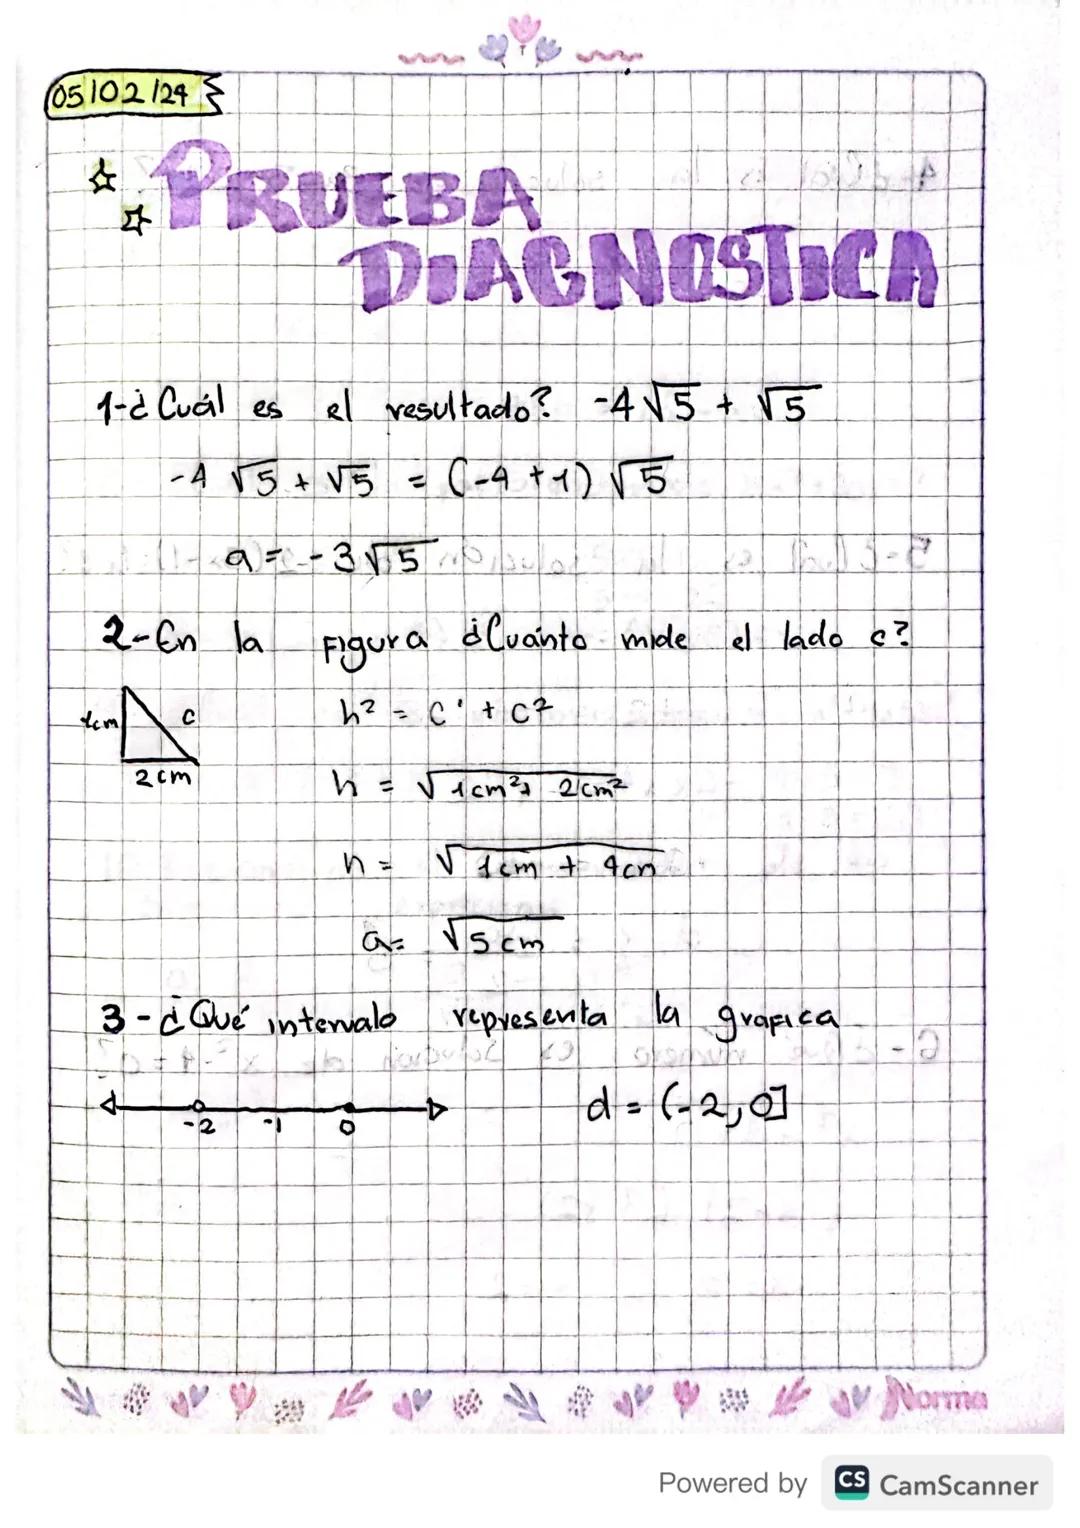 05/02/24
PRUEBA
DIAGNOSTICA
1-¿Cuál es el resultado? -4√5 + √5
-4√5 + √5 = (-4+1)√5
a = -3√5
2-En la figura ¿Cuánto mide el lado c?
1cm c h² = c' + c²
2cm
h = √1cm²+ 2cm²
h = √1cm + 4cm
a= √5cm
3-¿Qué intervalo representa la grafica
-2 -1 0 d = (-2,0]
Norma
Powered by CS CamScanner